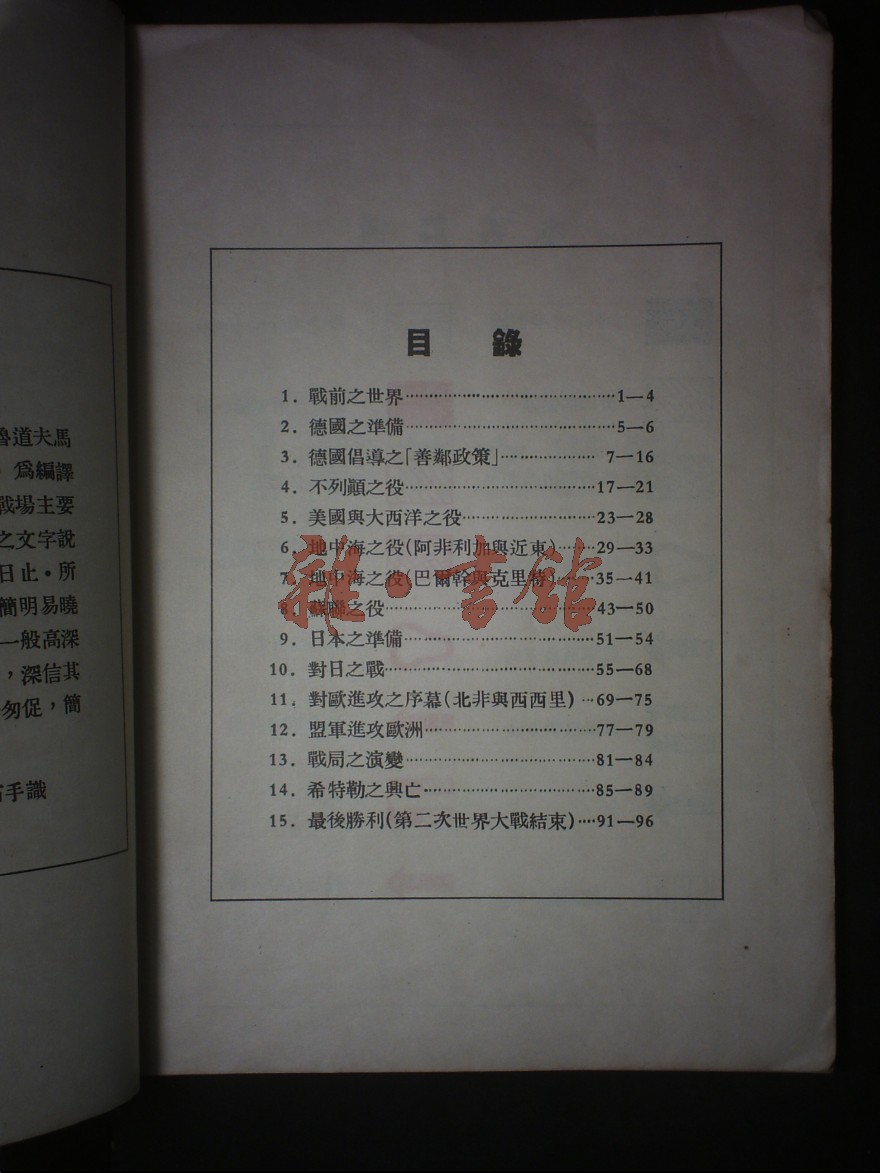 魯道夫馬
爲編譯
戰場主要
之文字說
日止·所
簡明易曉
一般高深
，深信其
匆促，簡
手識
目 錄
1. 戰前之世界⋯⋯⋯⋯1—4
2. 德國之準備⋯⋯⋯⋯5—6
3. 德國倡導之「善鄰政策」⋯⋯⋯⋯7—16
4. 不列顚之役⋯⋯⋯⋯17—21
5. 美國與大西洋之役⋯⋯⋯⋯23—28
6. 地中海之役(阿非利加與近東)⋯⋯29—33
7. 地中海之役(巴爾幹與克里特)⋯⋯35—41
8. 蘇聯之役⋯⋯⋯⋯43—50
9. 日本之準備⋯⋯⋯⋯51—54
10. 對日之戰⋯⋯⋯⋯55—68
11. 對歐進攻之序幕(北非與西西里)⋯69—75
12. 盟軍進攻歐洲⋯⋯⋯⋯77—79
13. 戰局之演變⋯⋯⋯⋯81—84
14. 希特勒之興亡⋯⋯⋯⋯85—89
15. 最後勝利(第二次世界大戰結束)⋯⋯91—96
雜·書館